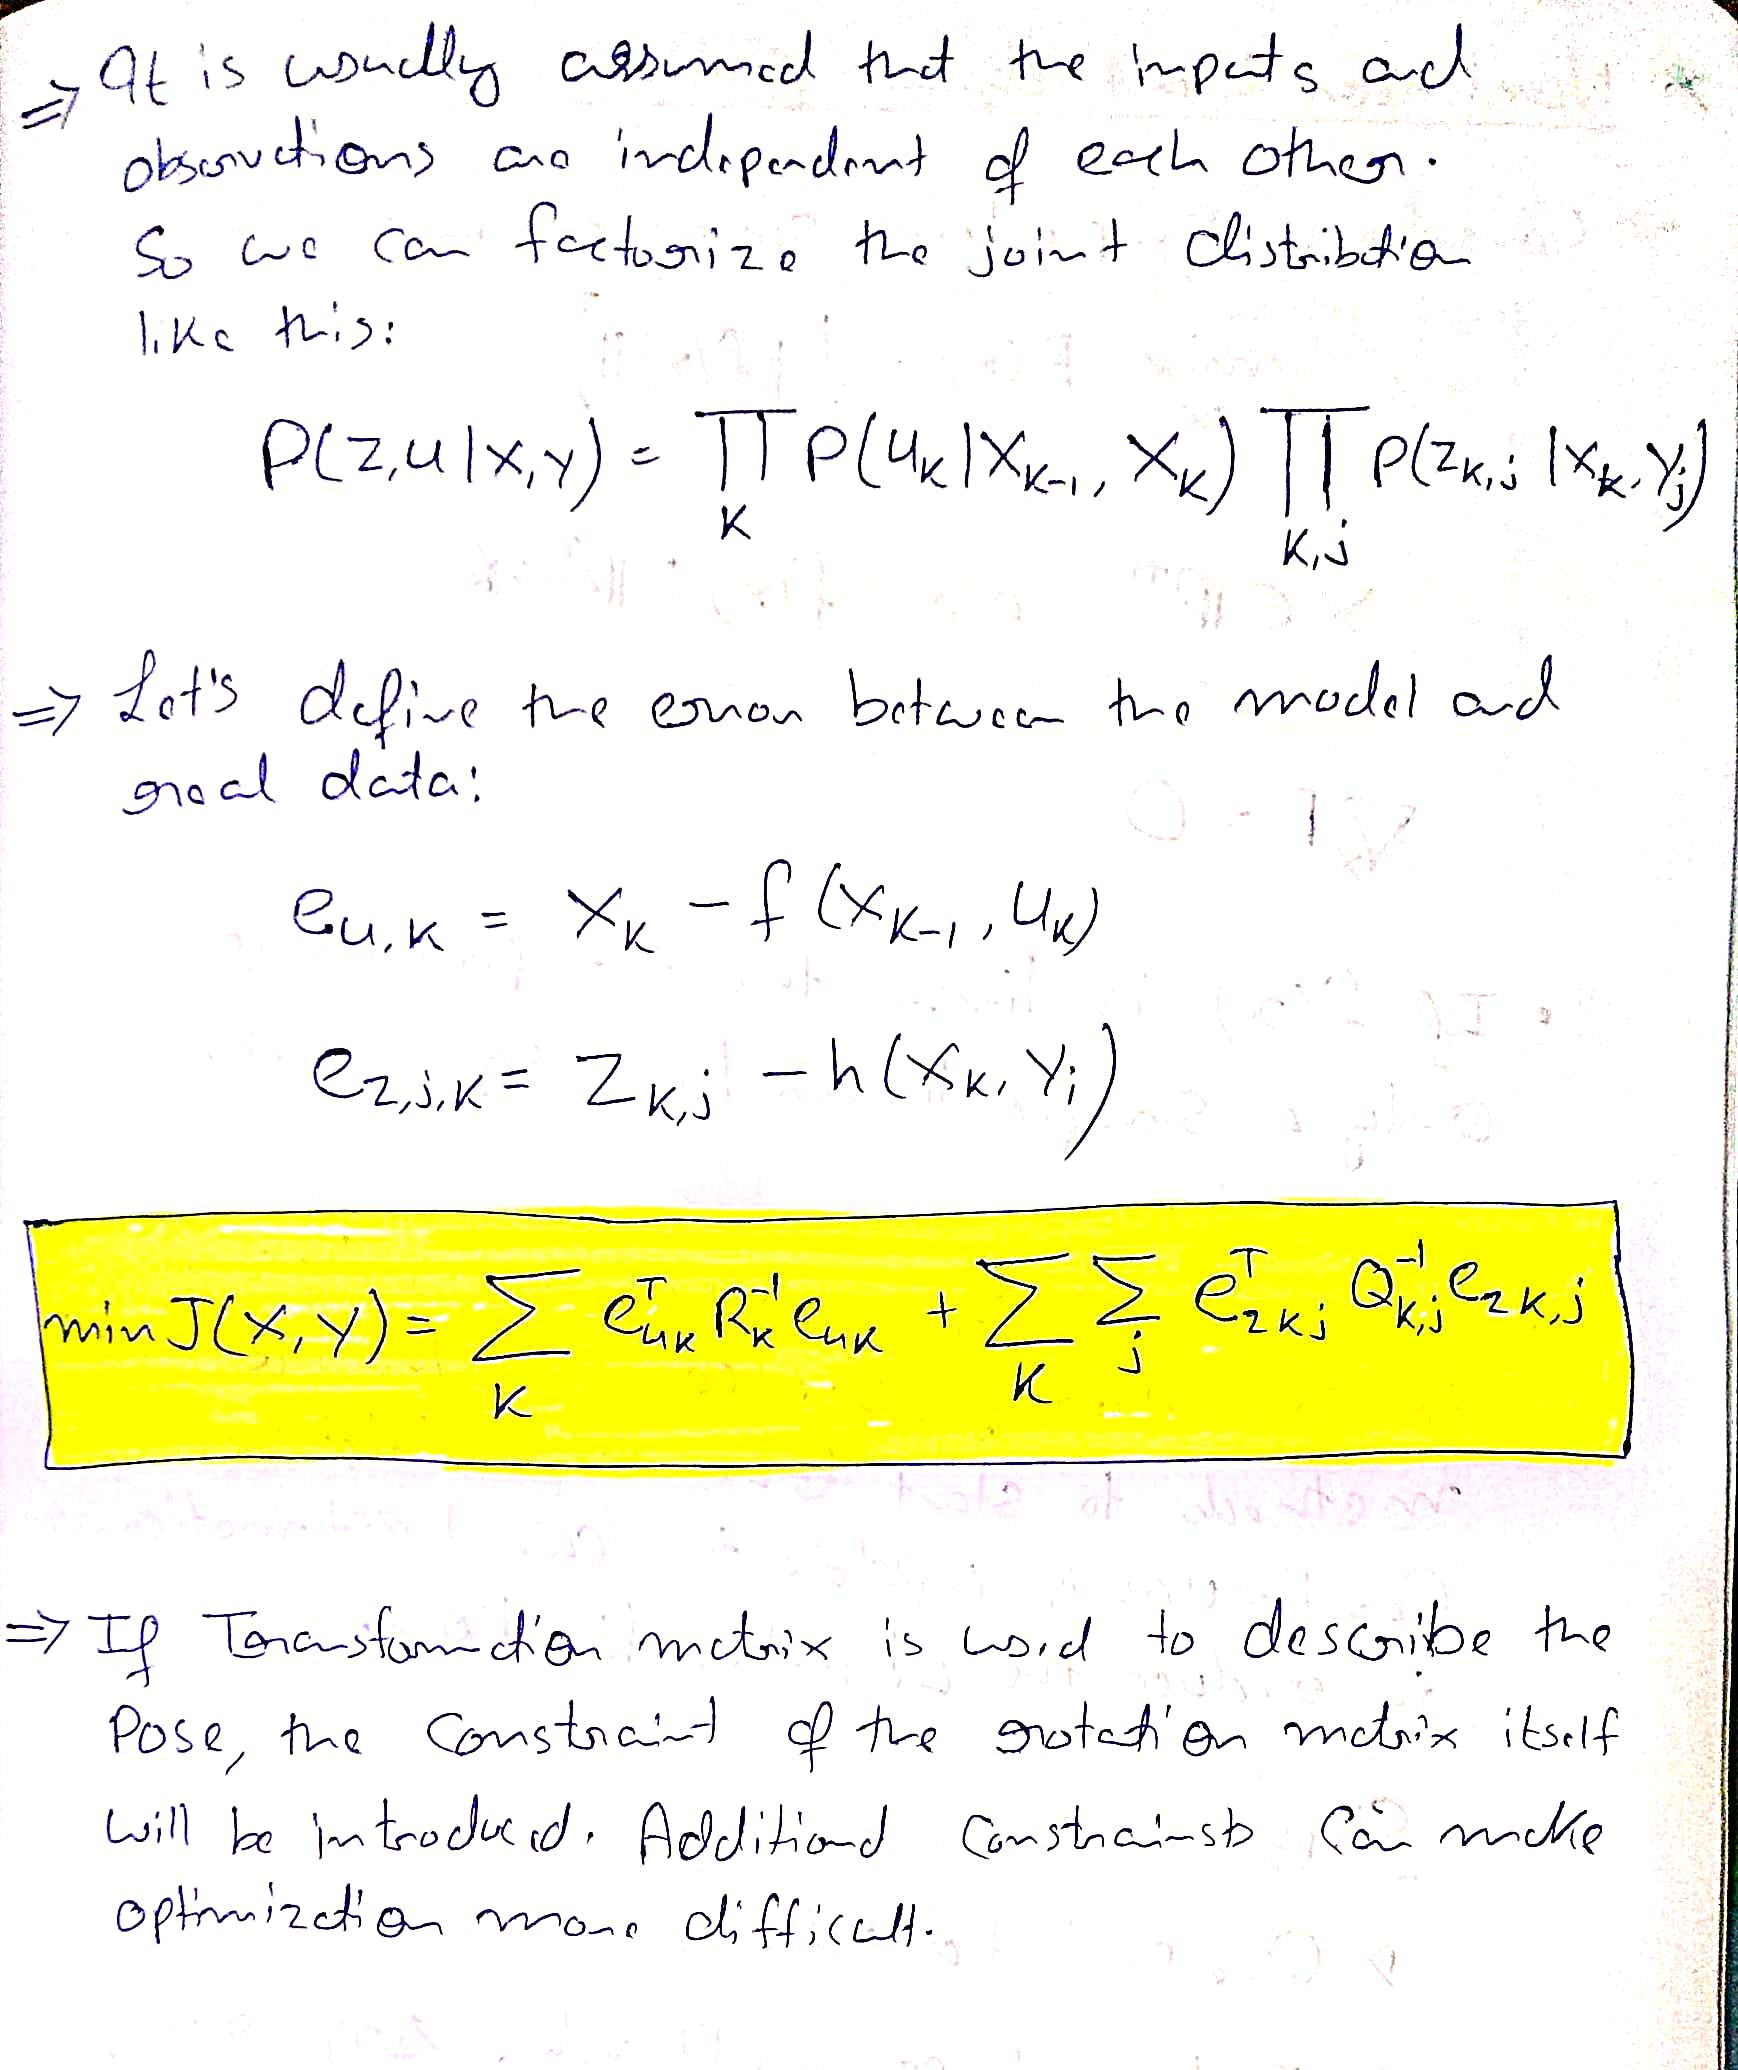 ⇒ It is usually assumed that the inputs and
observations are independent of each other.
So we can factorize the joint distribution
like this:
P(z,u|x,y) = ∏_K P(u_K|x_{K-1}, x_K) ∏_{K,j} P(z_{K,j}|x_K, y_j)
⇒ Let's define the error between the model and
real data:
e_{u,K} = x_K - f(x_{K-1}, u_K)
e_{z,j,K} = z_{K,j} - h(x_K, y_j)
min J(x,y) = ∑_K e^T_{uK} R^{-1}_K e_{uK} + ∑_K ∑_j e^T_{zKj} Q^{-1}_{K,j} e_{zK,j}
⇒ If Transformation matrix is used to describe the
Pose, the constraint of the rotation matrix itself
will be introduced. Additional constrainsts can make
optimization more difficult.